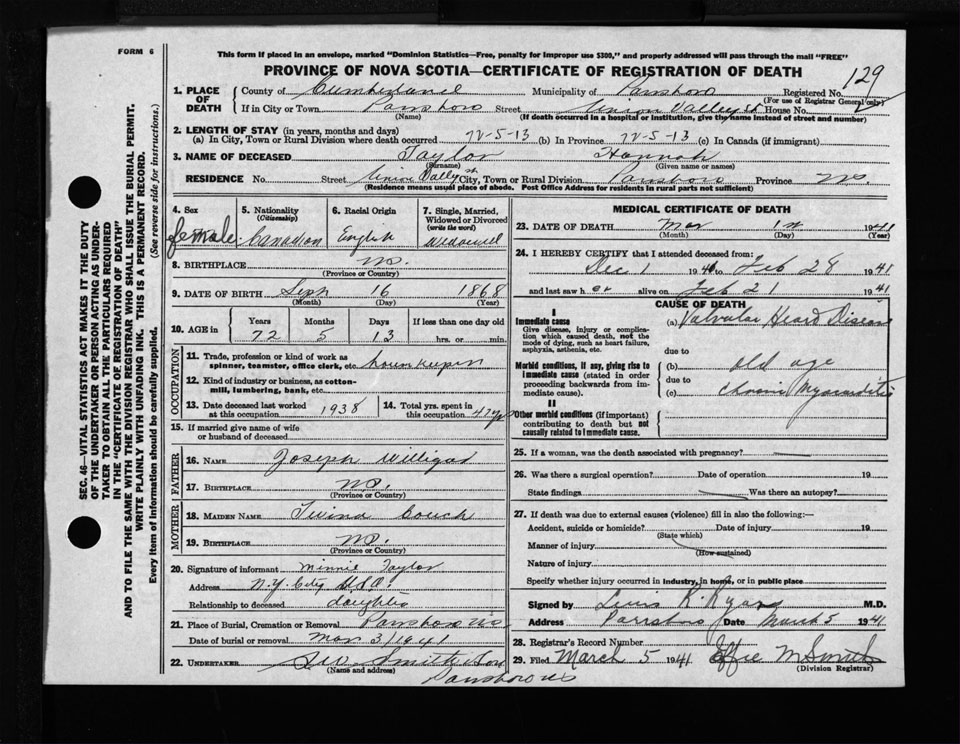 FORM 6
This form if placed in an envelope, marked "Dominion Statistics—Free, penalty for improper use $300," and properly addressed will pass through the mail "FREE"
PROVINCE OF NOVA SCOTIA—CERTIFICATE OF REGISTRATION OF DEATH
129
1. PLACE OF DEATH
County of Cumberland Municipality of Parrsboro Registered No.
(For use of Registrar General only)
If in City or Town Parrsboro Street Union Valley St House No.
(Name) (If death occurred in a hospital or institution, give the name instead of street and number)
2. LENGTH OF STAY (in years, months and days)
(a) In City, Town or Rural Division where death occurred 72-5-13 (b) In Province 72-5-13 (c) In Canada (if immigrant)
3. NAME OF DECEASED Taylor Hannah
(Surname) (Given name or names)
RESIDENCE No. Street Union Vally st City, Town or Rural Division Parrsboro Province NS.
(Residence means usual place of abode. Post Office Address for residents in rural parts not sufficient)
4. Sex female
5. Nationality (Citizenship) Canadian
6. Racial Origin English
7. Single, Married, Widowed or Divorced (write the word) Widowed
8. BIRTHPLACE NS.
(Province or Country)
9. DATE OF BIRTH Sept 16 1868
(Month) (Day) (Year)
10. AGE in Years Months Days If less than one day old
72 5 13 hrs. or min.
OCCUPATION
11. Trade, profession or kind of work as spinner, teamster, office clerk, etc. housekeeper
12. Kind of industry or business, as cotton-mill, lumbering, bank, etc.
13. Date deceased last worked at this occupation 1938
14. Total yrs. spent in this occupation 47 yrs
15. If married give name of wife or husband of deceased
FATHER
16. NAME Joseph Willigar
17. BIRTHPLACE NS.
(Province or Country)
MOTHER
18. MAIDEN NAME Couch
19. BIRTHPLACE NS.
(Province or Country)
20. Signature of informant Minnie Taylor
Address N.Y. City U.S.A.
Relationship to deceased daughter
21. Place of Burial, Cremation or Removal Parrsboro NS
Date of burial or removal Mar 3/1941
22. UNDERTAKER Smith & Son
(Name and address)
Parrsboro NS
MEDICAL CERTIFICATE OF DEATH
23. DATE OF DEATH Mar 1st 1941
(Month) (Day) (Year)
24. I HEREBY CERTIFY that I attended deceased from:
Dec 1 1940 to Feb 28 1941
and last saw h er alive on Feb 21 1941
CAUSE OF DEATH
I
Immediate cause
Give disease, injury or complication which caused death, not the mode of dying, such as heart failure, asphyxia, asthenia, etc.
(a) Valvular Heart Disease
due to
Morbid conditions, if any, giving rise to immediate cause (stated in order proceeding backwards from immediate cause).
(b) old age
due to
(c) Chronic Myocarditis
II
Other morbid conditions (if important) contributing to death but not causally related to immediate cause.
25. If a woman, was the death associated with pregnancy?
26. Was there a surgical operation? Date of operation 19
State findings Was there an autopsy?
27. If death was due to external causes (violence) fill in also the following:—
Accident, suicide or homicide? Date of injury 19
(State which)
Manner of injury
(How sustained)
Nature of injury
Specify whether injury occurred in industry, in home, or in public place
Signed by R. Ryan M.D.
Address Parrsboro Date March 5 1941
28. Registrar's Record Number
29. Filed March 5 1941 Effie M Smith
(Division Registrar)
SEC. 46—VITAL STATISTICS ACT MAKES IT THE DUTY
OF THE UNDERTAKER OR PERSON ACTING AS UNDER-
TAKER TO OBTAIN ALL THE PARTICULARS REQUIRED
IN THE "CERTIFICATE OF REGISTRATION OF DEATH"
AND TO FILE THE SAME WITH THE DIVISION REGISTRAR WHO SHALL ISSUE THE BURIAL PERMIT.
WRITE PLAINLY WITH UNFADING INK. THIS IS A PERMANENT RECORD.
Every item of information should be carefully supplied. (See reverse side for instructions.)